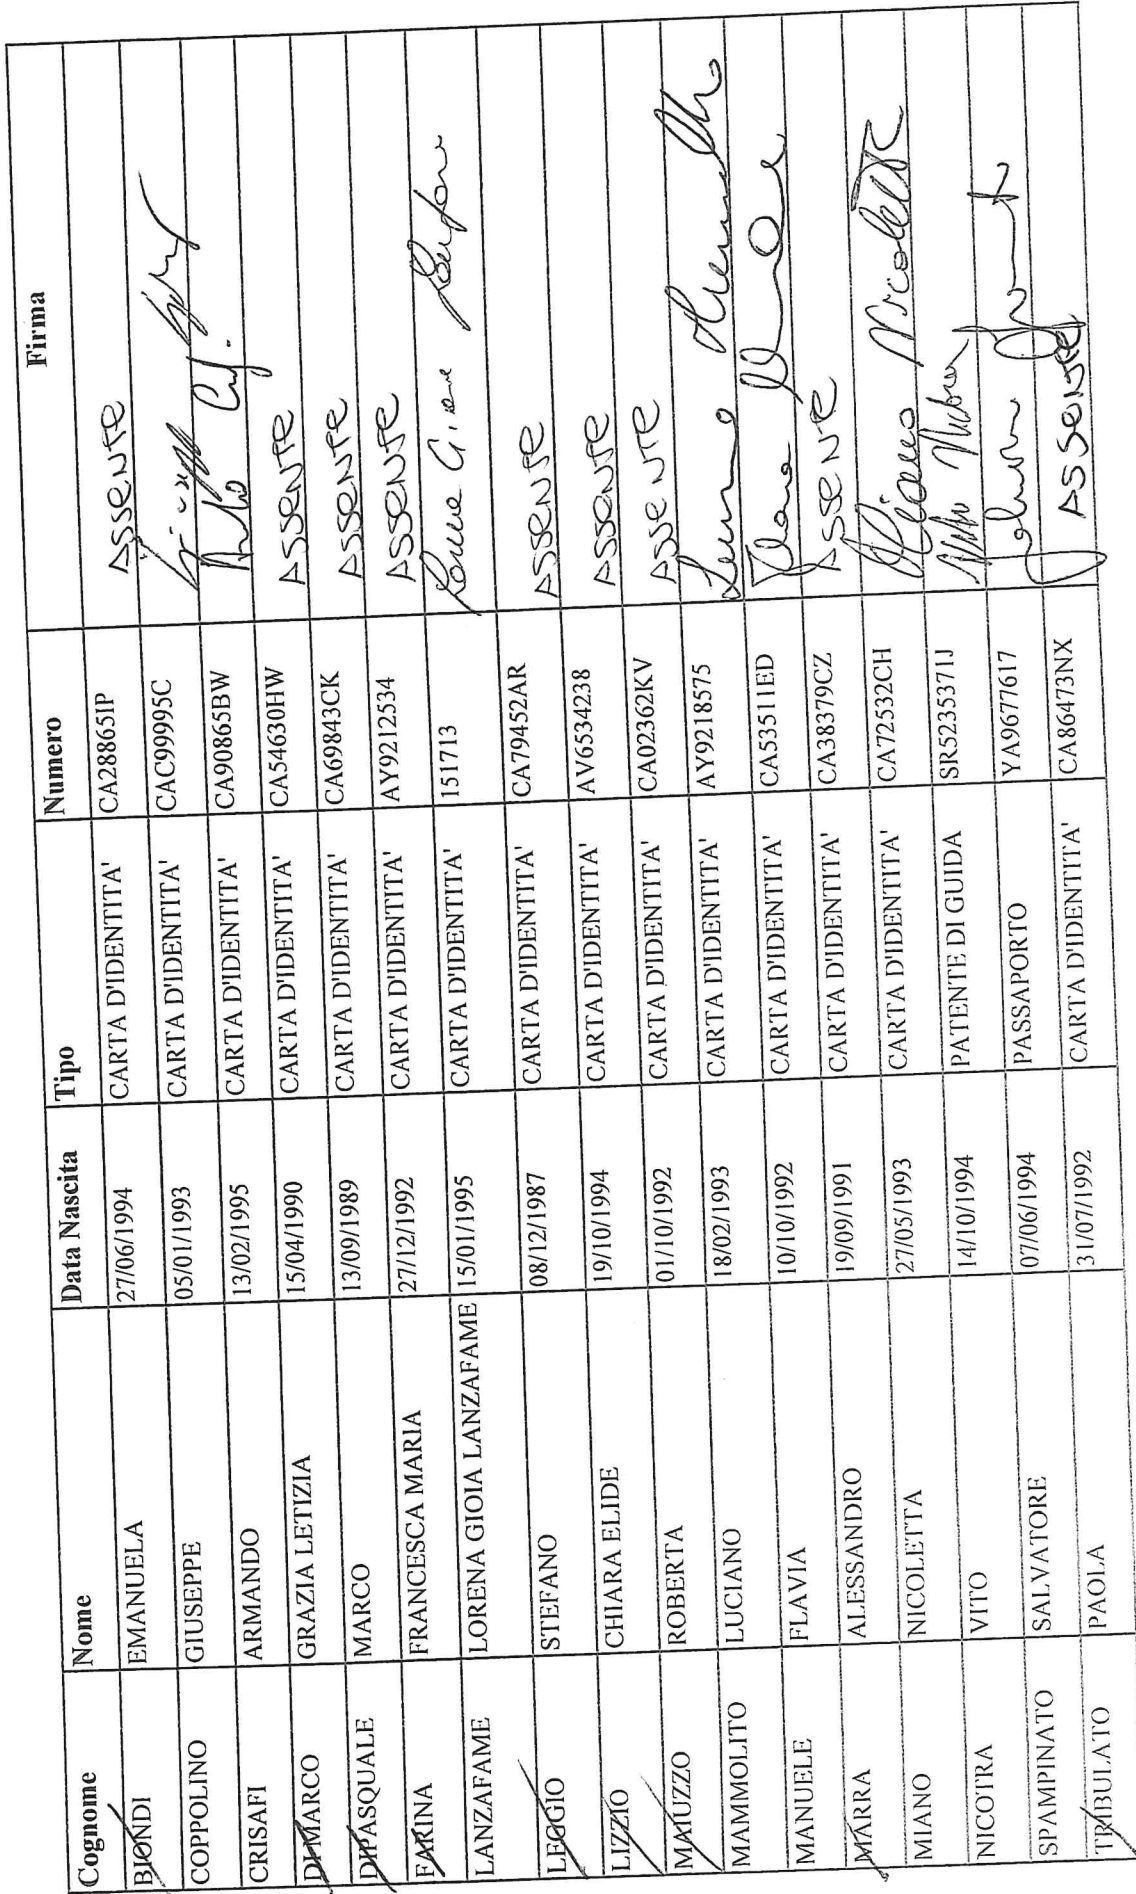 Cognome Nome Data Nascita Tipo Numero Firma
BIONDI EMANUELA 27/06/1994 CARTA D'IDENTITA' CA28865IP ASSENTE
COPPOLINO GIUSEPPE 05/01/1993 CARTA D'IDENTITA' CAC99995C
CRISAFI ARMANDO 13/02/1995 CARTA D'IDENTITA' CA90865BW
DI MARCO GRAZIA LETIZIA 15/04/1990 CARTA D'IDENTITA' CA54630HW ASSENTE
DIPASQUALE MARCO 13/09/1989 CARTA D'IDENTITA' CA69843CK ASSENTE
FARINA FRANCESCA MARIA 27/12/1992 CARTA D'IDENTITA' AY9212534 ASSENTE
LANZAFAME LORENA GIOIA LANZAFAME 15/01/1995 CARTA D'IDENTITA' 151713
LEGGIO STEFANO 08/12/1987 CARTA D'IDENTITA' CA79452AR ASSENTE
LIZZIO CHIARA ELIDE 19/10/1994 CARTA D'IDENTITA' AV6534238 ASSENTE
MAIUZZO ROBERTA 01/10/1992 CARTA D'IDENTITA' CA02362KV ASSENTE
MAMMOLITO LUCIANO 18/02/1993 CARTA D'IDENTITA' AY9218575
MANUELE FLAVIA 10/10/1992 CARTA D'IDENTITA' CA53511ED
MARRA ALESSANDRO 19/09/1991 CARTA D'IDENTITA' CA38379CZ ASSENTE
MIANO NICOLETTA 27/05/1993 CARTA D'IDENTITA' CA72532CH Miano Nicoletta
NICOTRA VITO 14/10/1994 PATENTE DI GUIDA SR5235371J
SPAMPINATO SALVATORE 07/06/1994 PASSAPORTO YA9677617
TRIBULATO PAOLA 31/07/1992 CARTA D'IDENTITA' CA86473NX ASSENTE